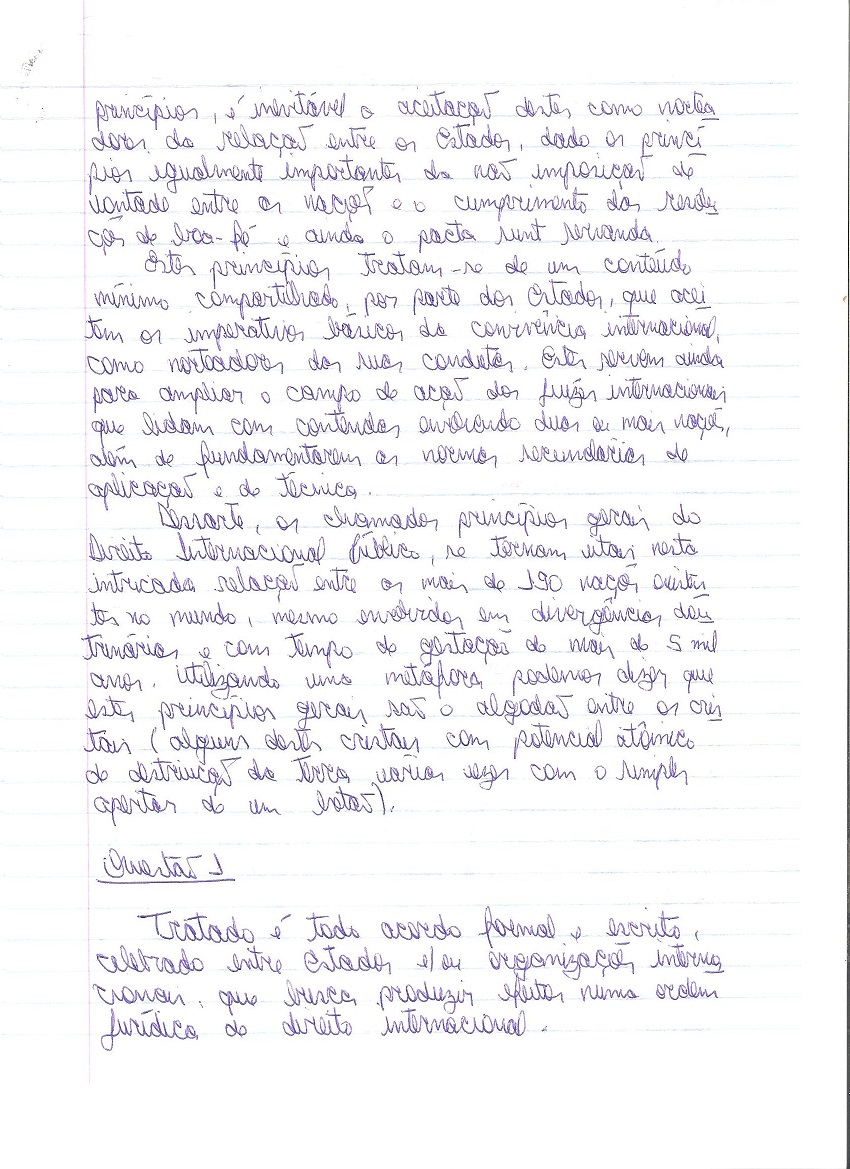 princípios, é inevitável a aceitação destes como nortea
dores da relação entre os Estados, dado os princí
pios igualmente importantes da não imposição de
vontade entre as nações e o cumprimento das
ções de boa-fé e ainda o pacta sunt servanda.
Estes princípios tratam-se de um conteúdo
mínimo compartilhado, por parte dos Estados, que acei
tam os imperativos básicos da convivência internacional,
como norteadores das suas condutas. Estes servem ainda
para ampliar o campo de ação dos juízes internacionais
que lidam com contendas envolvendo duas ou mais nações,
além de fundamentarem as normas secundárias de
aplicação e de técnica.
Dessarte, os chamados princípios gerais do
Direito Internacional Público, se tornam vitais nesta
intricada relação entre as mais de 190 nações existen
tes no mundo, mesmo envolvidos em divergências dou
trinárias e com tempo de gestação de mais de 5 mil
anos. Utilizando uma metáfora podemos dizer que
estes princípios gerais são o algodão entre os cris
tais (alguns destes cristais com potencial atômico
de destruição da Terra várias vezes com o simples
apertar de um botão).
Questão 1
Tratado é todo acordo formal e escrito,
celebrado entre Estados e/ou organizações interna
cionais, que busca produzir efeitos numa ordem
jurídica de direito internacional.